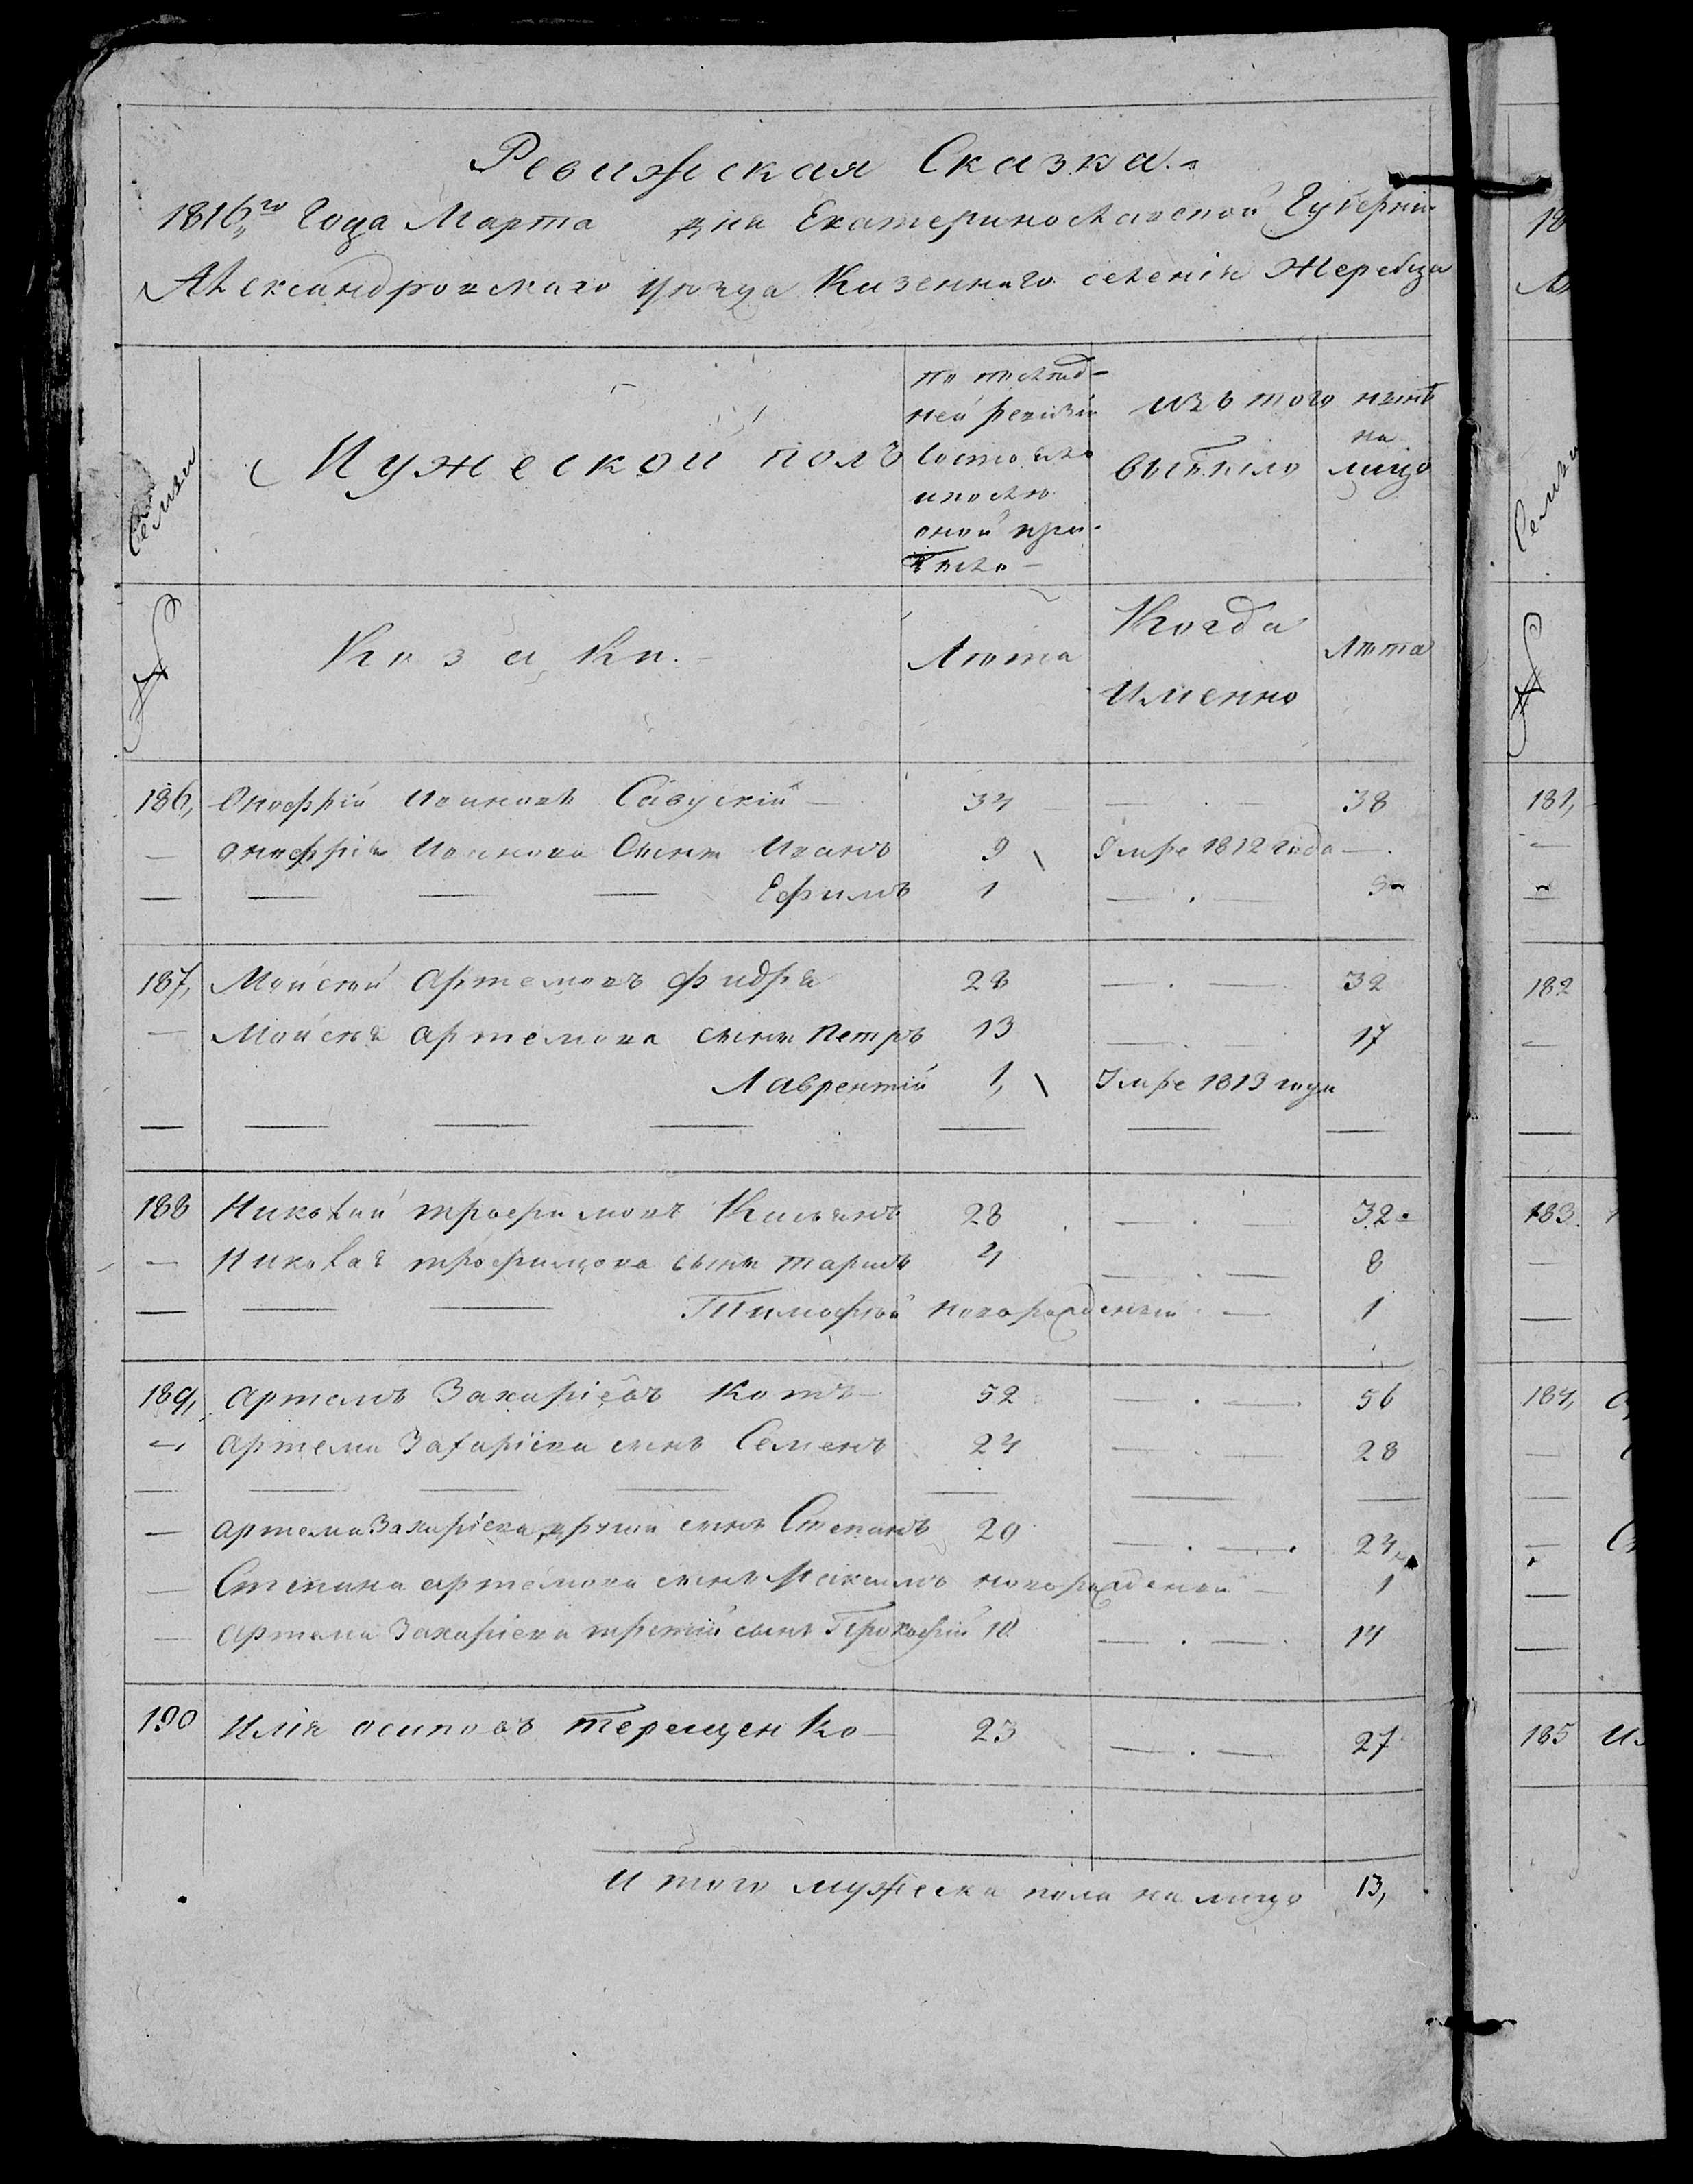 Ревижская Сказка.
1816го Года Марта дня Екатеринославской Губернии
Александровского уезда Казенного селения Жеребца
Семьи
Мужеской полъ
по послед-
ней ревизии
состояло
и после
оной при-
было
изъ того
выбыло
ныне
на
лицо
№
Козаки.
Лета
Когда
именно
Лета
186, Онофрій Ивановъ Савускій 34 — · — 38
— Онофрія Иванова Сынъ Иванъ 9 Умре 1812 года —
— — — — Ефимъ 1 — · —
187, Мойсей Артемовъ Фидря 28 — · — 32
— Мойсея Артемова сынъ Петръ 13 — · — 17
Лаврентій 1, Умре 1813 года
— — — — — — —
188 Николай Трофимовъ 28 — · — 32
— Николая Трофимова сынъ Тарасъ 4 — · — 8
— — — Тимофей новорожденный · — 1
189, Артемъ Захаріевъ Котъ 52 — · — 56
— Артема Захаріева сынъ Семенъ 24 — · — 28
— — — — — — —
— Артема Захаріева другой сынъ Степанъ 20 — · — · 24
— Степана Артемова сынъ Максимъ новорожденной — 1
— Артема Захаріева третій сынъ Прокофій 10 — · — 14
190 Илія Осиповъ Терещенко — 23 — · — 27
Итого мужеска пола на лицо 13,
18
Семьи
№
181,
182
183
184,
185